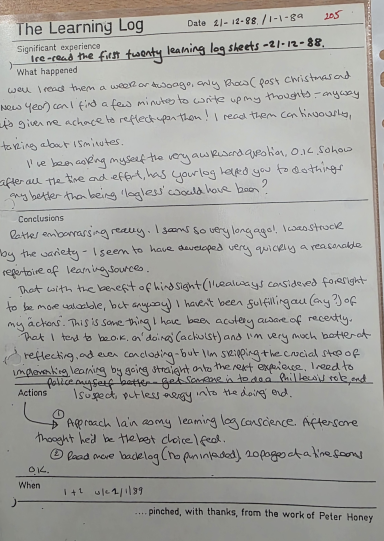 The Learning Log Date 21-12-88 / 1-1-89 205
Significant experience
I re-read the first twenty learning log sheets - 21-12-88.
What happened
Well I read them a week or two ago, only now (post Christmas and
New Year) can I find a few minutes to write up my thoughts - anyway
it's given me a chance to reflect upon them! I read them continuously,
taking about 15 minutes.
I've been asking myself the very awkward question, O.K, so how
after all the time and effort, has your log helped you to do things
any better than being 'logless' would have been?
Conclusions
Rather embarrassing really. It seems so very long ago! I was struck
by the variety - I seem to have developed very quickly a reasonable
repertoire of learning sources.
That with the benefit of hindsight (I've always considered foresight
to be more valuable, but anyway) I haven't been fulfilling all (any?) of
my 'actions'. This is something I have been acutely aware of recently.
That I tend to be O.K. on 'doing' (activist) and I'm very much better at
reflecting, and even concluding - but I'm skipping the crucial step of
implementing learning by going straight onto the next experience. I need to
police myself better - get someone in to do a role and
Actions I suspect, put less energy into the doing end.
① Approach Iain as my learning log conscience. After some
thought he'd be the best choice I feel.
② Read more backlog (no pun intended), 20 pages at a time seems
O.K.
When
1 + 2 w/c 2/1/89
....pinched, with thanks, from the work of Peter Honey